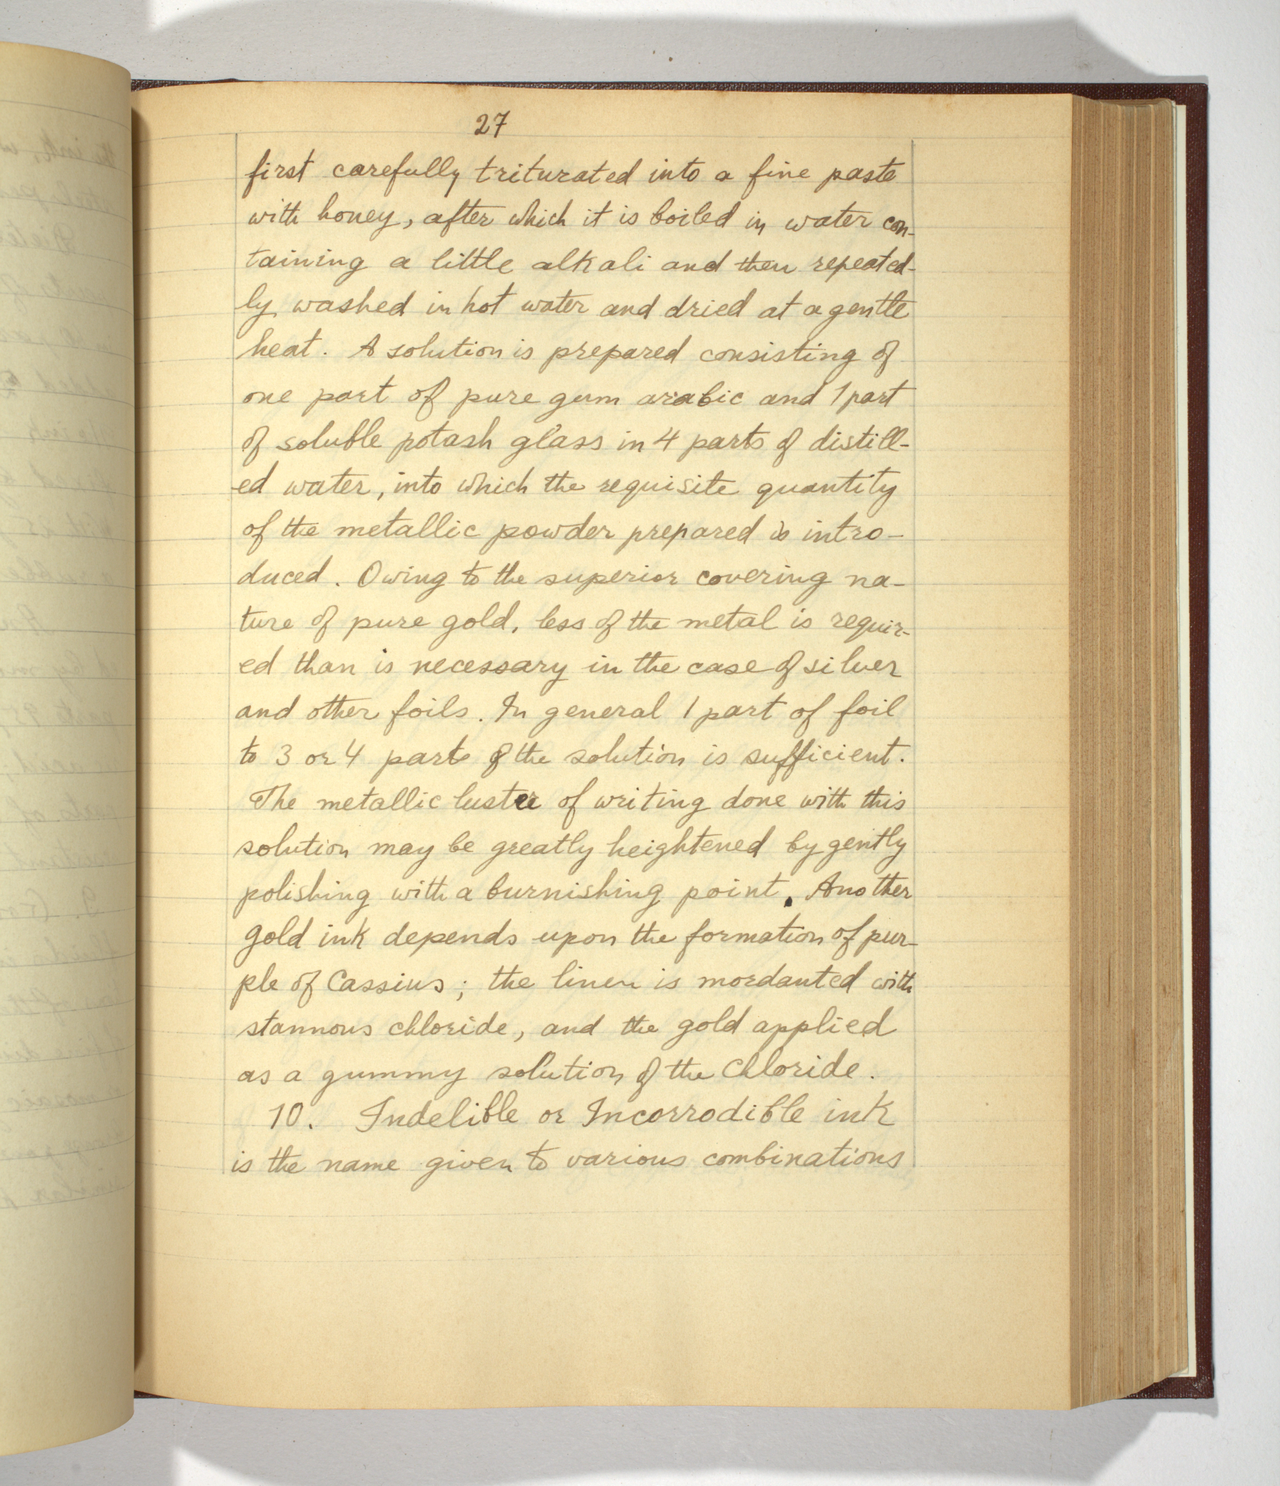 27
first carefully triturated into a fine paste
with honey, after which it is boiled in water con-
taining a little alkali and then repeated-
ly washed in hot water and dried at a gentle
heat. A solution is prepared consisting of
one part of pure gum arabic and 1 part
of soluble potash glass in 4 parts of distill-
ed water, into which the requisite quantity
of the metallic powder prepared is intro-
duced. Owing to the superior covering na-
ture of pure gold, less of the metal is requir-
ed than is necessary in the case of silver
and other foils. In general 1 part of foil
to 3 or 4 parts of the solution is sufficient.
The metallic luster of writing done with this
solution may be greatly heightened by gently
polishing with a burnishing point. Another
gold ink depends upon the formation of pur-
ple of Cassius; the linen is mordanted with
stannous chloride, and the gold applied
as a gummy solution of the chloride.
10. Indelible or Incorrodible ink
is the name given to various combinations